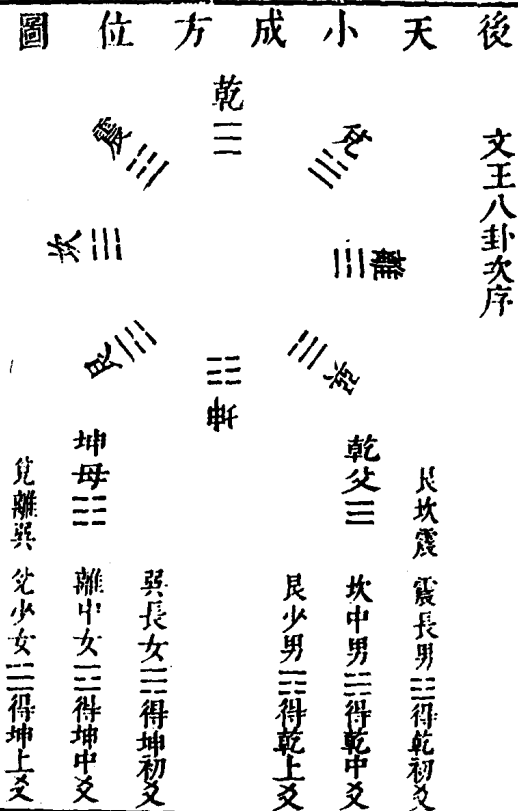 後天小成方位圖
文王八卦次序
乾☰
兌☱
離☲
巽☴
坤☷
艮☶
坎☵
震☳
艮坎震
震長男☳得乾初爻
乾父☰
坎中男☵得乾中爻
艮少男☶得乾上爻
巽長女☴得坤初爻
坤母☷
離中女☲得坤中爻
兌離巽
兌少女☱得坤上爻